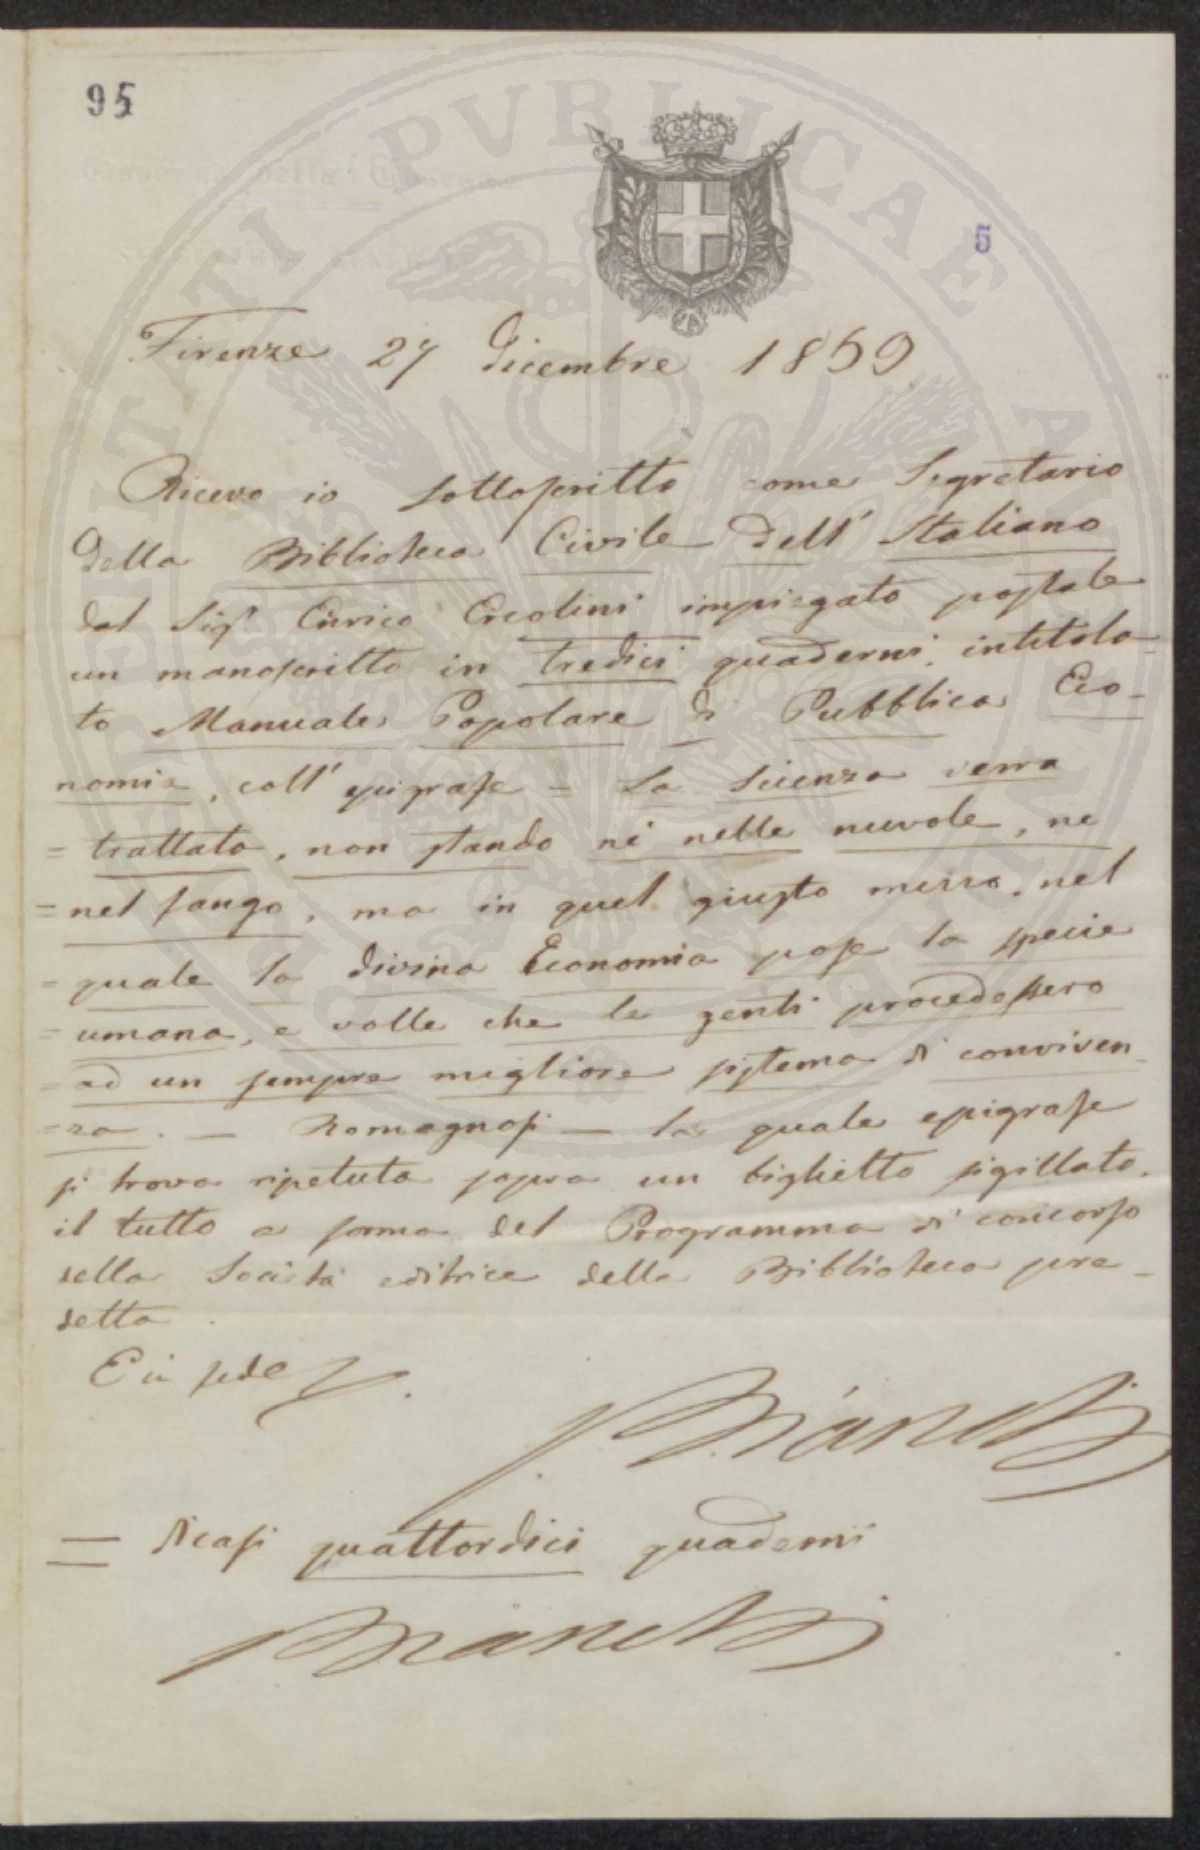 95
5
Firenze 27 Dicembre 1859
Ricevo io sottoscritto come Segretario
della Biblioteca Civile dell' Italiano
dal Sigr Enrico Ercolini impiegato postale
un manoscritto in tredici quaderni intitola-
to Manuale Popolare di Pubblica Eco-
nomia, coll' epigrafe = La Scienza verra
= trattata, non stando nè nelle nuvole, ne
= nel fango, ma in quel giusto mezzo, nel
= quale la divina Economia pose la specie
= umana, e volle che le genti procedessero
= ad un sempre migliore sistema di conviven-
= za. — Romagnosi — la quale epigrafe
si trova ripetuta sopra un biglietto sigillato.
il tutto a forma del Programma di concorso
della Società editrice della Biblioteca pre-
detta.
E in fede
Bianchi
= dicasi quattordici quaderni
Bianchi